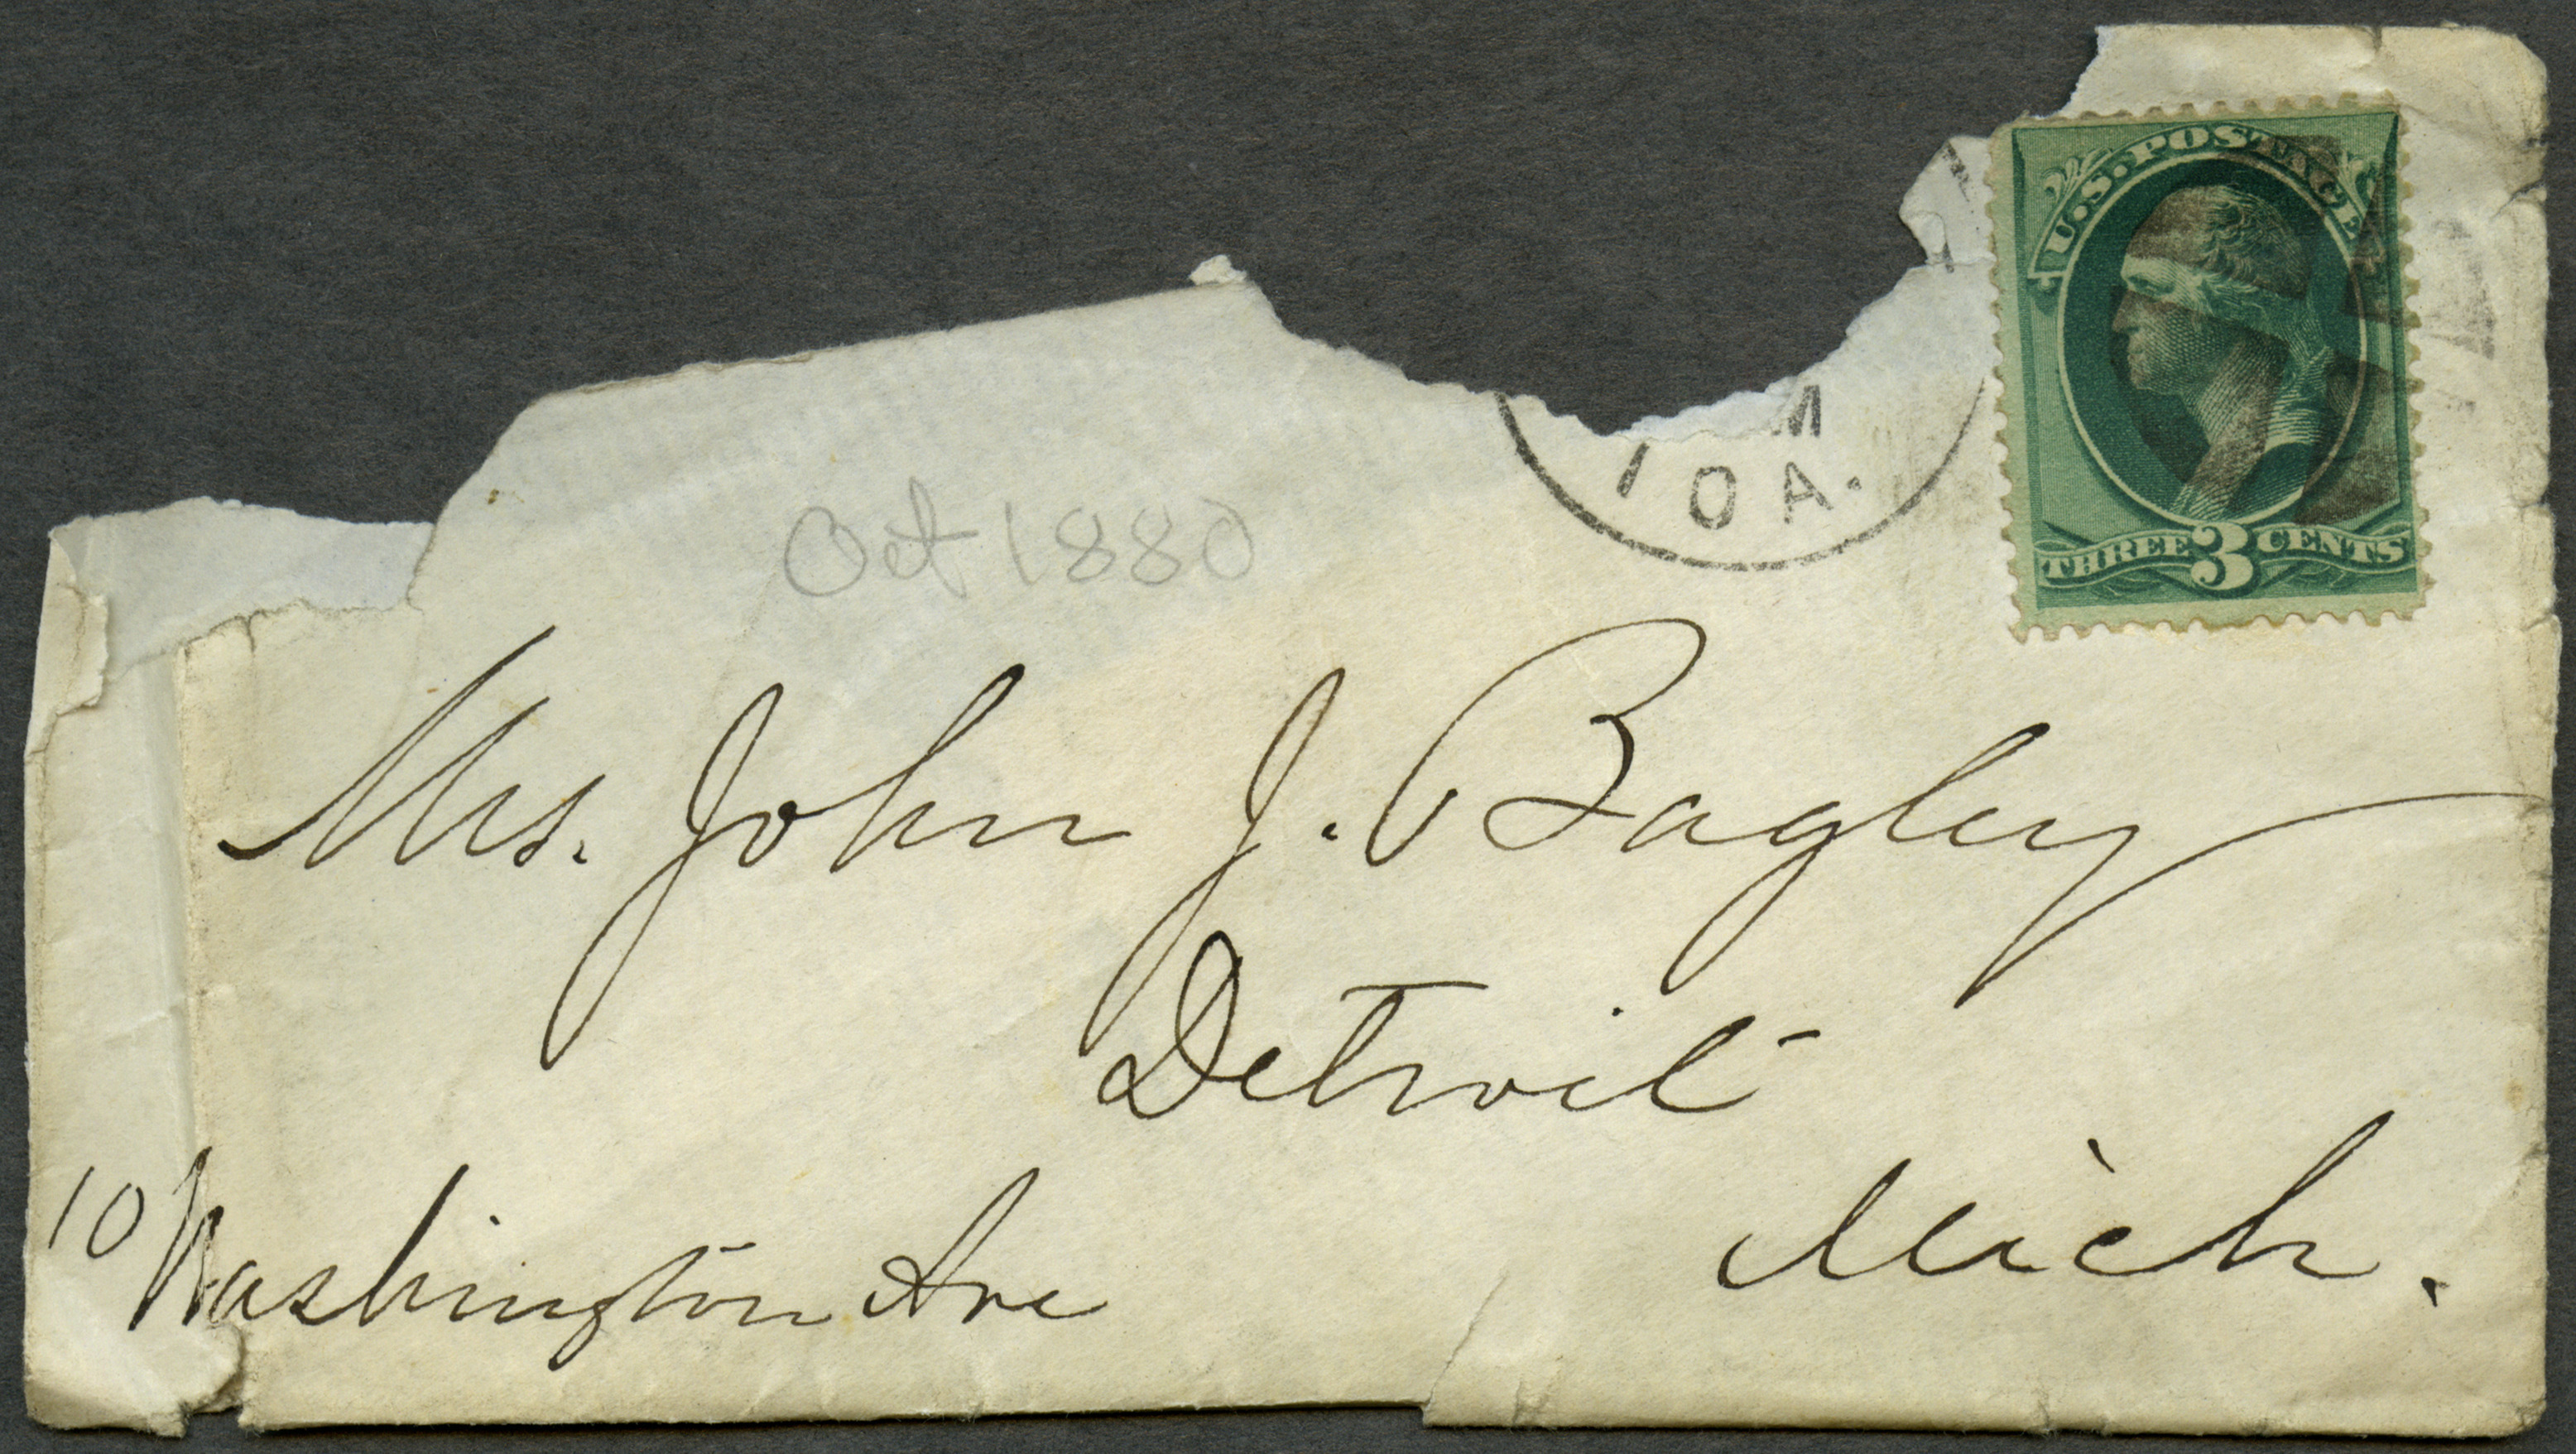 U.S. POSTAGE
THREE 3 CENTS
M
IOA.
Oct 1880
Mrs. John J. Bagley
Detroit
Mich.
10 Washington Ave